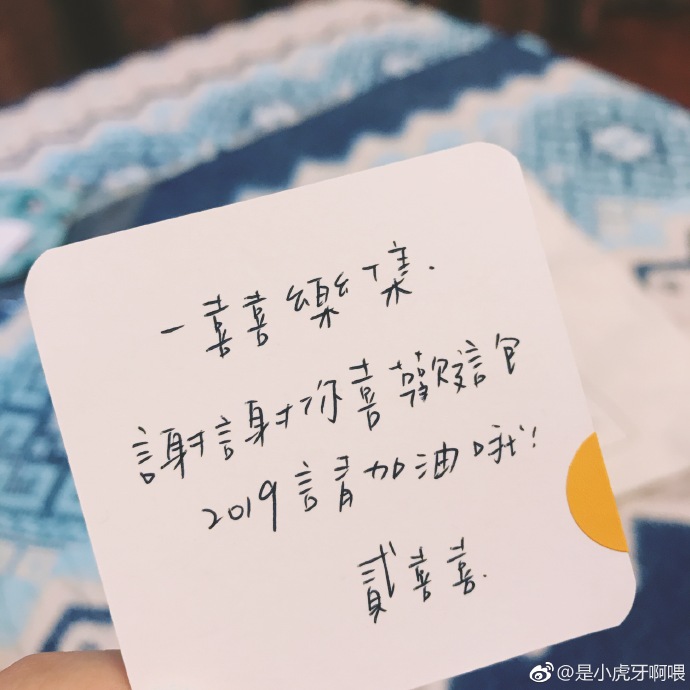 一喜喜樂集.
謝謝你喜歡這
2019請加油哦!
貳喜喜.
@是小虎牙啊喂